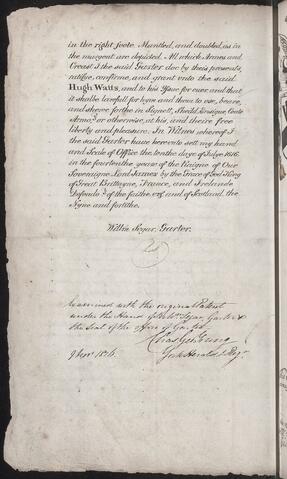 in the right foote. Mantled, and doubled, as in
the margent are depicted. All which Armes and
Creast I the said Garter doe by theis presents,
ratifie, confirme, and grant unto the said
Hugh Watts, and to his Yssue for ever and that
it shalbe lawfull for hym and them to use, beare,
and shewe forthe in Signett, Sheild, Ensigne, Coate
Armor, or otherwise, at his, and theire free
liberty and pleasure. In Witnes whereof I
the said Garter have hereunto sett my hand
and Seale of Office the tenthe daye of Julye 1616
in the fourteenthe yeare of the Raigne of Our
Soveraigne Lord James by the Grace of God King
of Great Brittayne, France, and Irelande
Defendr of the faithe etc and of Scotland the
Nyne and fortithe.
Willm Segar. Garter.
Examined with the original Patent
under the Hand of Sir Wm Segar, Garter &
the Seal of the Office of Garter
Chas Geo Young
York Herald & Regr